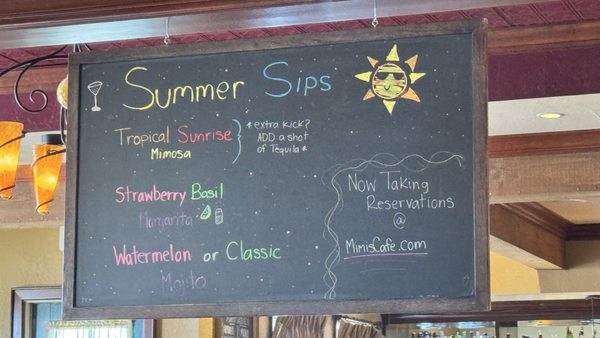 Summer Sips
Tropical Sunrise
Mimosa
*extra kick?
ADD a shot
of Tequila*
Strawberry Basil
Margarita
Watermelon or Classic
Mojito
Now Taking
Reservations
@
MimisCafe.com